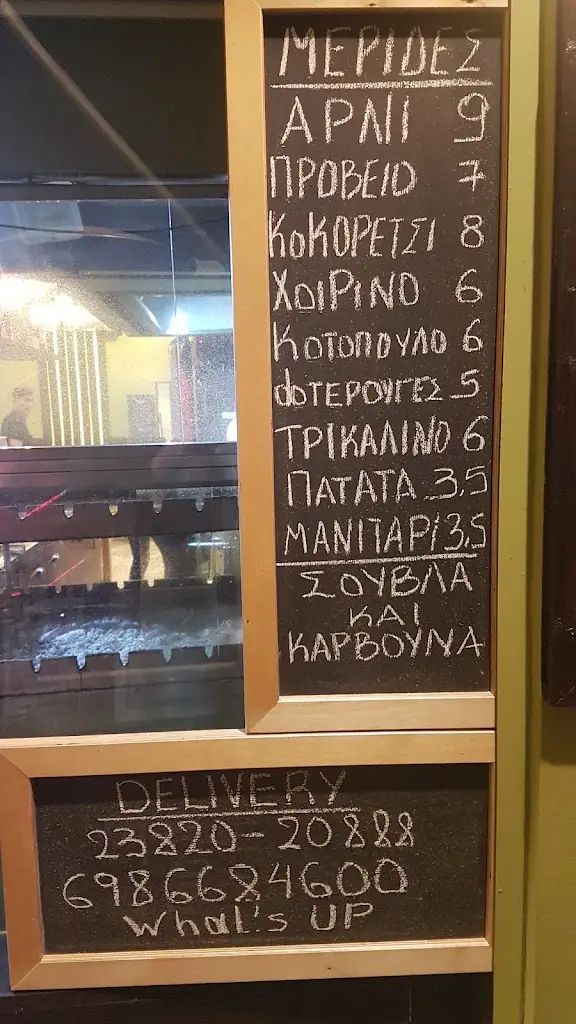 ΜΕΡΙΔΕΣ
ΑΡΝΙ 9
ΠΡΟΒΕΙΟ 7
ΚΟΚΟΡΕΤΣΙ 8
ΧΟΙΡΙΝΟ 6
ΚΟΤΟΠΟΥΛΟ 6
ΦΤΕΡΟΥΓΕΣ 5
ΤΡΙΚΑΛΙΝΟ 6
ΠΑΤΑΤΑ 3,5
ΜΑΝΙΤΑΡΙ 3,5
ΣΟΥΒΛΑ
ΚΑΙ
ΚΑΡΒΟΥΝΑ
DELIVERY
23820-20888
6986684600
What's UP